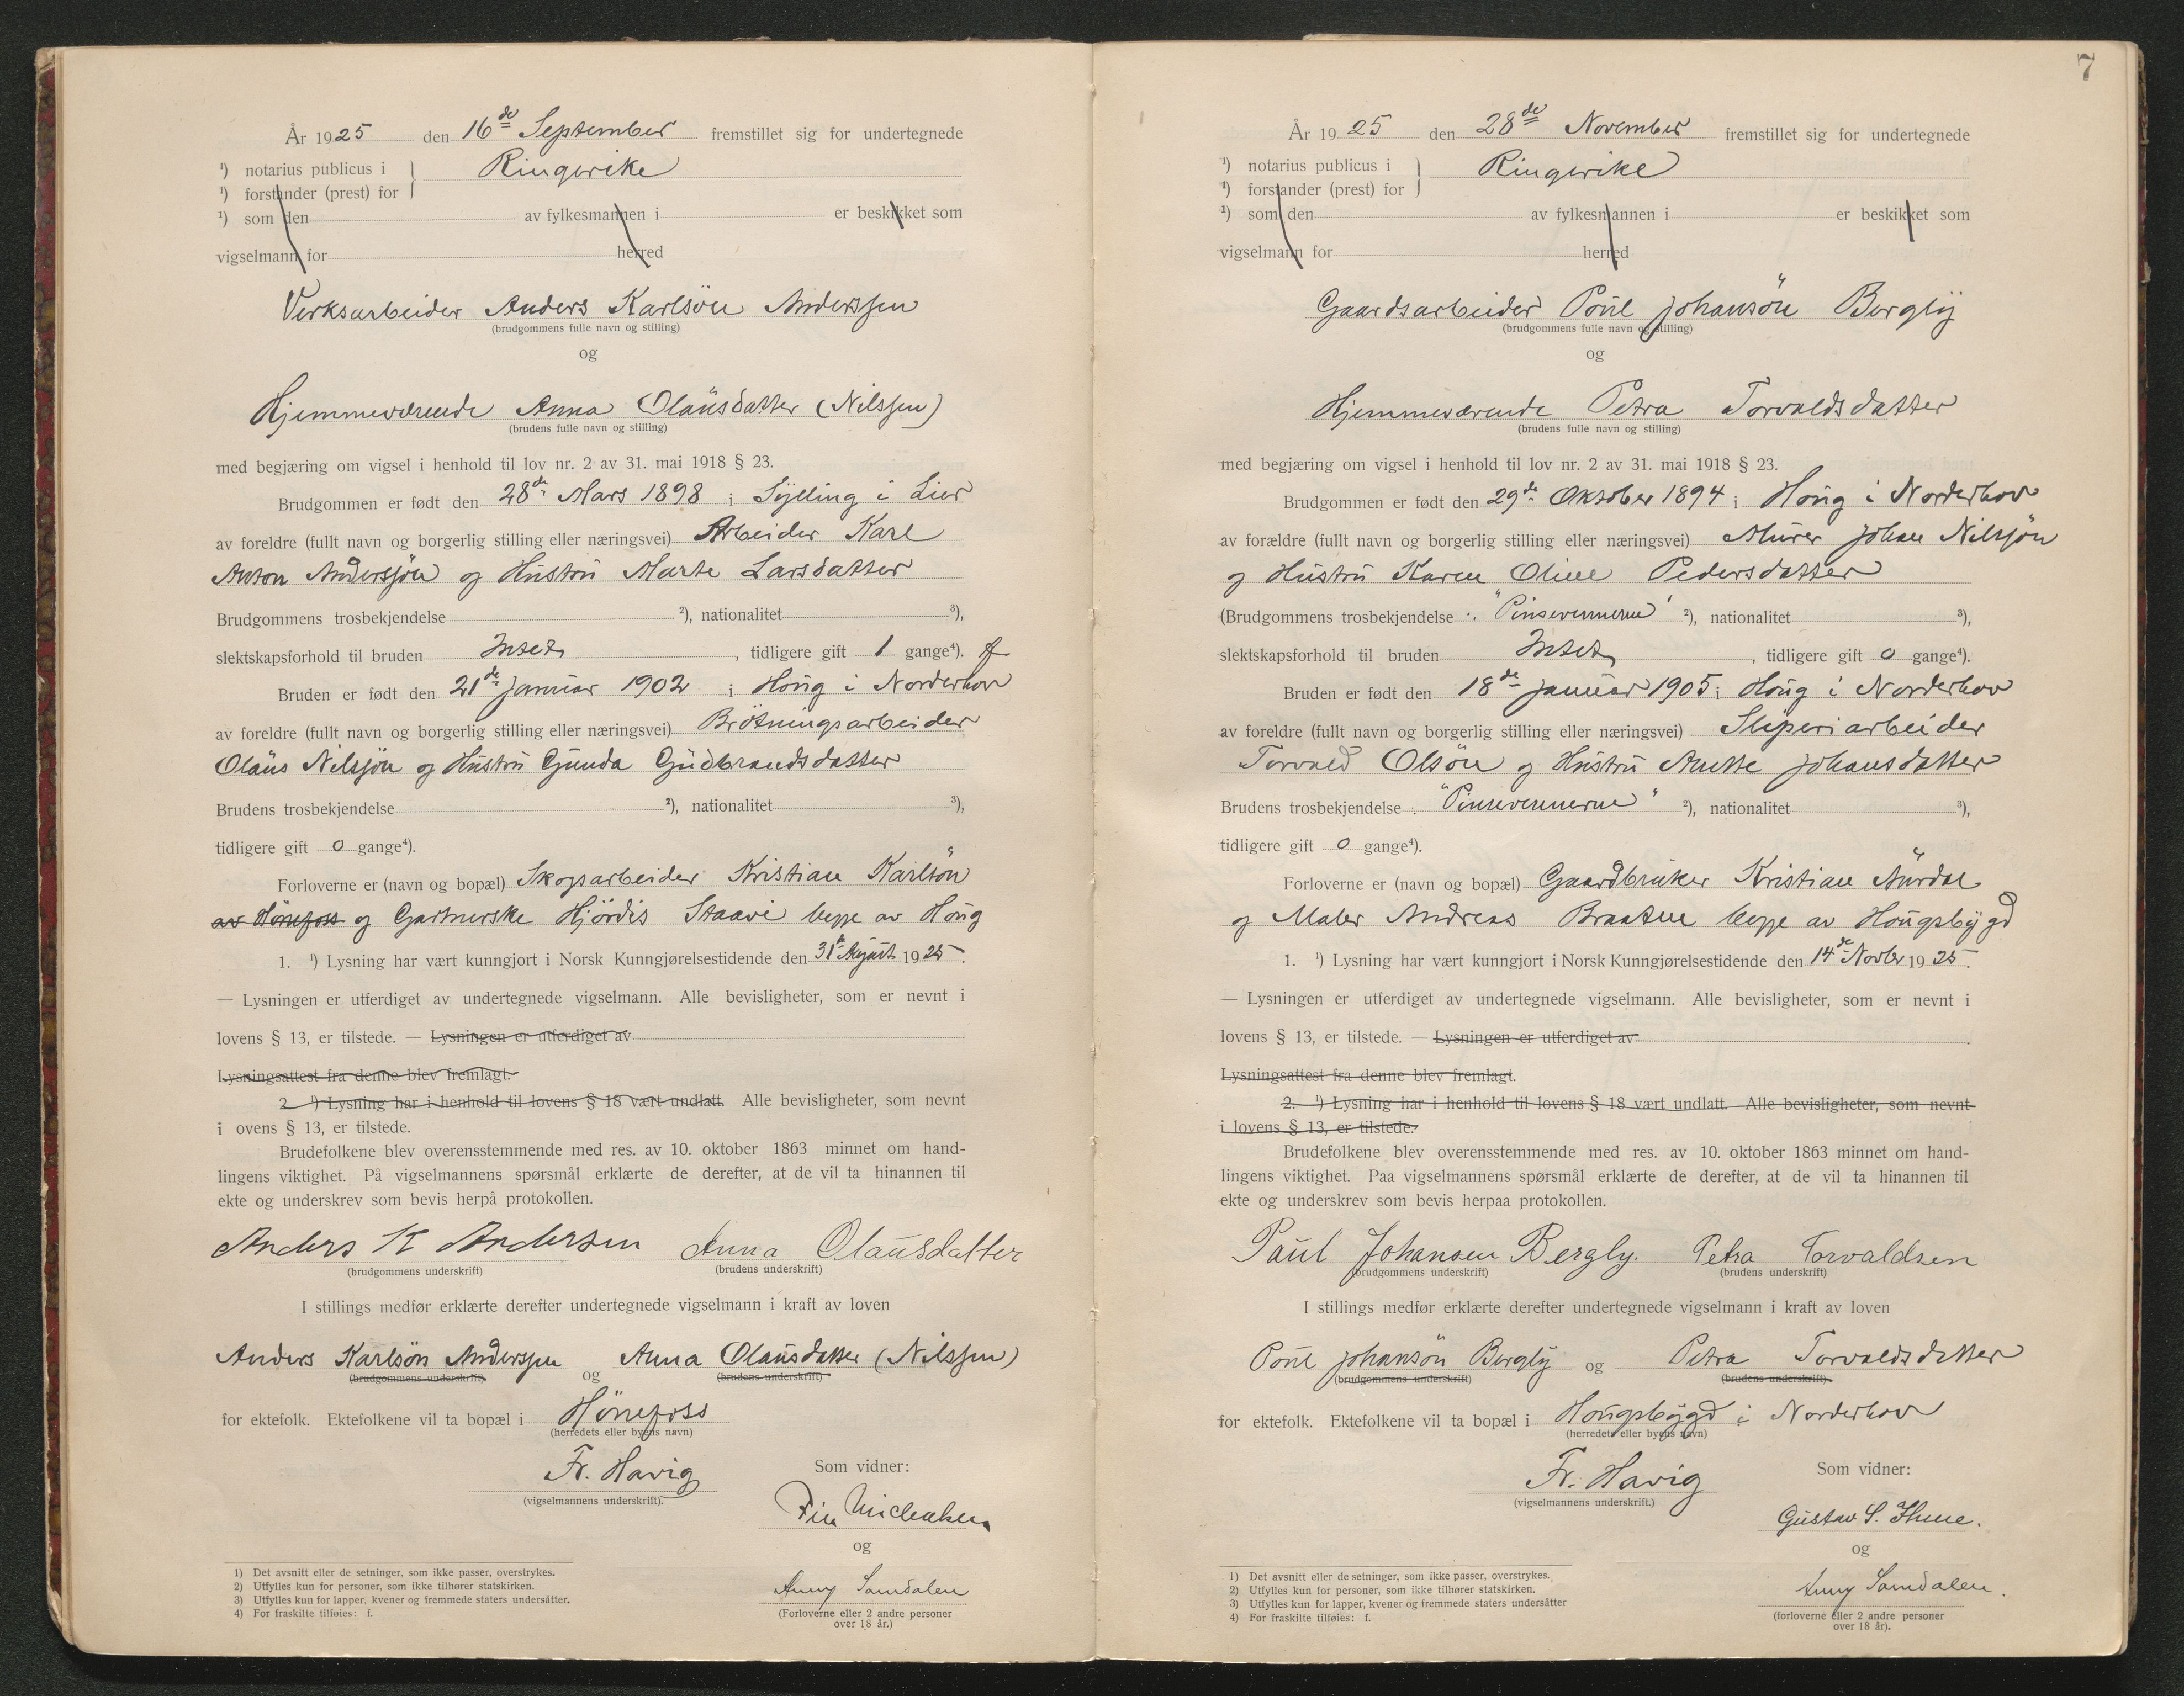 År 1925 den 16de September fremstillet sig for undertegnede
¹) notarius publicus i } Ringerike
¹) forstander (prest) for
¹) som den av fylkesmannen i er beskikket som
vigselmann for herred
Verksarbeider Anders Karlsön Anderssen
(brudgommens fulle navn og stilling)
og
Hjemmeværende Anna Olausdatter (Nilssen)
(brudens fulle navn og stilling)
med begjæring om vigsel i henhold til lov nr. 2 av 31. mai 1918 § 23.
Brudgommen er født den 28de Mars 1898 i Sylling i Lier
av foreldre (fullt navn og borgerlig stilling eller næringsvei) Arbeider Karl
Anton Anderssön og Hustru Marte Larsdatter
Brudgommens trosbekjendelse ²), nationalitet ³),
slektskapsforhold til bruden Intet, tidligere gift 1 gange⁴). f
Bruden er født den 21de Januar 1902 i Houg i Norderhov
av foreldre (fullt navn og borgerlig stilling eller næringsvei) Brötningsarbeider
Olaus Nilssön og Hustru Gunda Gudbrandsdatter
Brudens trosbekjendelse ²), nationalitet ³),
tidligere gift 0 gange⁴).
Forloverne er (navn og bopæl) Skogsarbeider Kristian Karlsön
av Hönefoss og Gartnerske Hjördis Staavi begge av Houg
1. ¹) Lysning har vært kunngjort i Norsk Kunngjørelsestidende den 31te August 1925.
— Lysningen er utferdiget av undertegnede vigselmann. Alle bevisligheter, som er nevnt i
lovens § 13, er tilstede. — Lysningen er utferdiget av
Lysningsattest fra denne blev fremlagt.
2. ¹) Lysning har i henhold til lovens § 18 vært undlatt. Alle bevisligheter, som nevnt
i ovens § 13, er tilstede.
Brudefolkene blev overensstemmende med res. av 10. oktober 1863 minnet om hand-
lingens viktighet. På vigselmannens spørsmål erklærte de derefter, at de vil ta hinannen til
ekte og underskrev som bevis herpå protokollen.
Anders K Andersen Anna Olausdatter
(brudgommens underskrift) (brudens underskrift)
I stillings medfør erklærte derefter undertegnede vigselmann i kraft av loven
Anders Karlsön Anderssen og Anna Olausdatter (Nilssen)
(brudgommens underskrift) (brudens underskrift)
for ektefolk. Ektefolkene vil ta bopæl i Hönefoss
(herredets eller byens navn)
Fr. Havig
(vigselmannens underskrift).
Som vidner:
og
Anny Samdalen
(Forloverne eller 2 andre personer
over 18 år.)
1) Det avsnitt eller de setninger, som ikke passer, overstrykes.
2) Utfylles kun for personer, som ikke tilhører statskirken.
3) Utfylles kun for lapper, kvener og fremmede staters undersåtter.
4) For fraskilte tilføies: f.
7
År 1925 den 28de November fremstillet sig for undertegnede
¹) notarius publicus i } Ringerike
¹) forstander (prest) for
¹) som den av fylkesmannen i er beskikket som
vigselmann for herred
Gaardsarbeider Poul Johansön Bergly
(brudgommens fulle navn og stilling)
og
Hjemmeværende Petra Torvaldsdatter
(brudens fulle navn og stilling)
med begjæring om vigsel i henhold til lov nr. 2 av 31. mai 1918 § 23.
Brudgommen er født den 29de Oktober 1894 i Houg i Norderhov
av forældre (fullt navn og borgerlig stilling eller næringsvei) Murer Johan Nilssön
og Hustru Karen Oline Pedersdatter
(Brudgommens trosbekjendelse: "Pinsevennerne" ²), nationalitet ³),
slektskapsforhold til bruden Intet, tidligere gift 0 gange⁴).
Bruden er født den 18de Januar 1905 i Houg i Norderhov
av foreldre (fullt navn og borgerlig stilling eller næringsvei) Sliperiarbeider
Torvald Olsön og Hustru Anette Johansdatter
Brudens trosbekjendelse: "Pinsevennerne" ²), nationalitet ³),
tidligere gift 0 gange⁴).
Forloverne er (navn og bopæl) Gaardbruker Kristian Aurdal
og Maler Andreas Braaten begge av Hougsbygd
1. ¹) Lysning har vært kunngjort i Norsk Kunngjørelsestidende den 14de Novbr 1925.
— Lysningen er utferdiget av undertegnede vigselmann. Alle bevisligheter, som er nevnt i
lovens § 13, er tilstede. — Lysningen er utferdiget av
Lysningsattest fra denne blev fremlagt.
2. ¹) Lysning har i henhold til lovens § 18 vært undlatt. Alle bevisligheter, som nevnt
i lovens § 13, er tilstede.
Brudefolkene blev overensstemmende med res. av 10. oktober 1863 minnet om hand-
lingens viktighet. Paa vigselmannens spørsmål erklærte de derefter, at de vil ta hinannen til
ekte og underskrev som bevis herpaa protokollen.
Paul Johansen Bergly. Petra Torvaldsen
(brudgommens underskrift) (brudens underskrift)
I stillings medfør erklærte derefter undertegnede vigselmann i kraft av loven
Poul Johansön Bergly og Petra Torvaldsdatter
(brudgommens underskrift) (brudens underskrift)
for ektefolk. Ektefolkene vil ta bopæl i Hougsbygd i Norderhov
(herredets eller byens navn)
Fr. Havig
(vigselmannens underskrift.)
Som vidner:
Gustav S.
og
Anny Samdalen.
(forloverne eller 2 andre personer
over 18 år).
1) Det avsnitt eller de setninger, som ikke passer, overstrykes.
2) Utfylles kun for personer, som ikke tilhører statskirken.
3) Utfylles kun for lapper, kvener og fremmede staters undersåtter
4) For fraskilte tilføies: f.